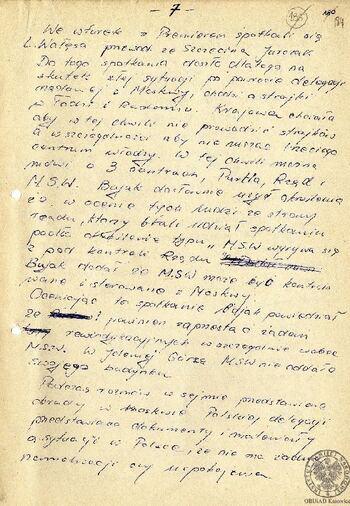 - 7 -
We wtorek z Premierem spotkali się
L. Wałęsa prawd ze Szczecina Jurczak
Do tego spotkania doszło dlatego na
skutek złej sytuacji po powrocie delegacji
rządowej z Moskwy, chodzi o strajki
w Łodzi i Radomiu. Krajowa chciała
aby w tej chwili nie prowadzić strajków
a w szczególności aby nie ruszać trzeciego
centrum władzy. W tej chwili można
mówić o 3 centrum, Partia, Rząd i
M.S.W. Bujak dosłownie użył określenia
że, w ocenie tych ludzi ze strony
rządu, którzy brali udział spotkaniu
padło określenie typu „MSW wyrywa się
z pod kontroli Rządu
Bujak dodał że MSW może być kontrolo
wane i sterowane z Moskwy.
Oceniając to spotkanie Bujak powiedział
że powinien zaprzestać żądań
rewindykacyjnych w szczególnie wobec
MSW. W Jeleniej Górze MSW nie oddało
swojego budynku.
Podczas rozmów w sejmie przedstawiono
obrady w Moskwie Polskiej delegacji
przedstawiono dokumenty i materiały
o sytuacji w Polsce, że nie ma
normalizacji czy uspokojenia.
OBUiAD Katowice